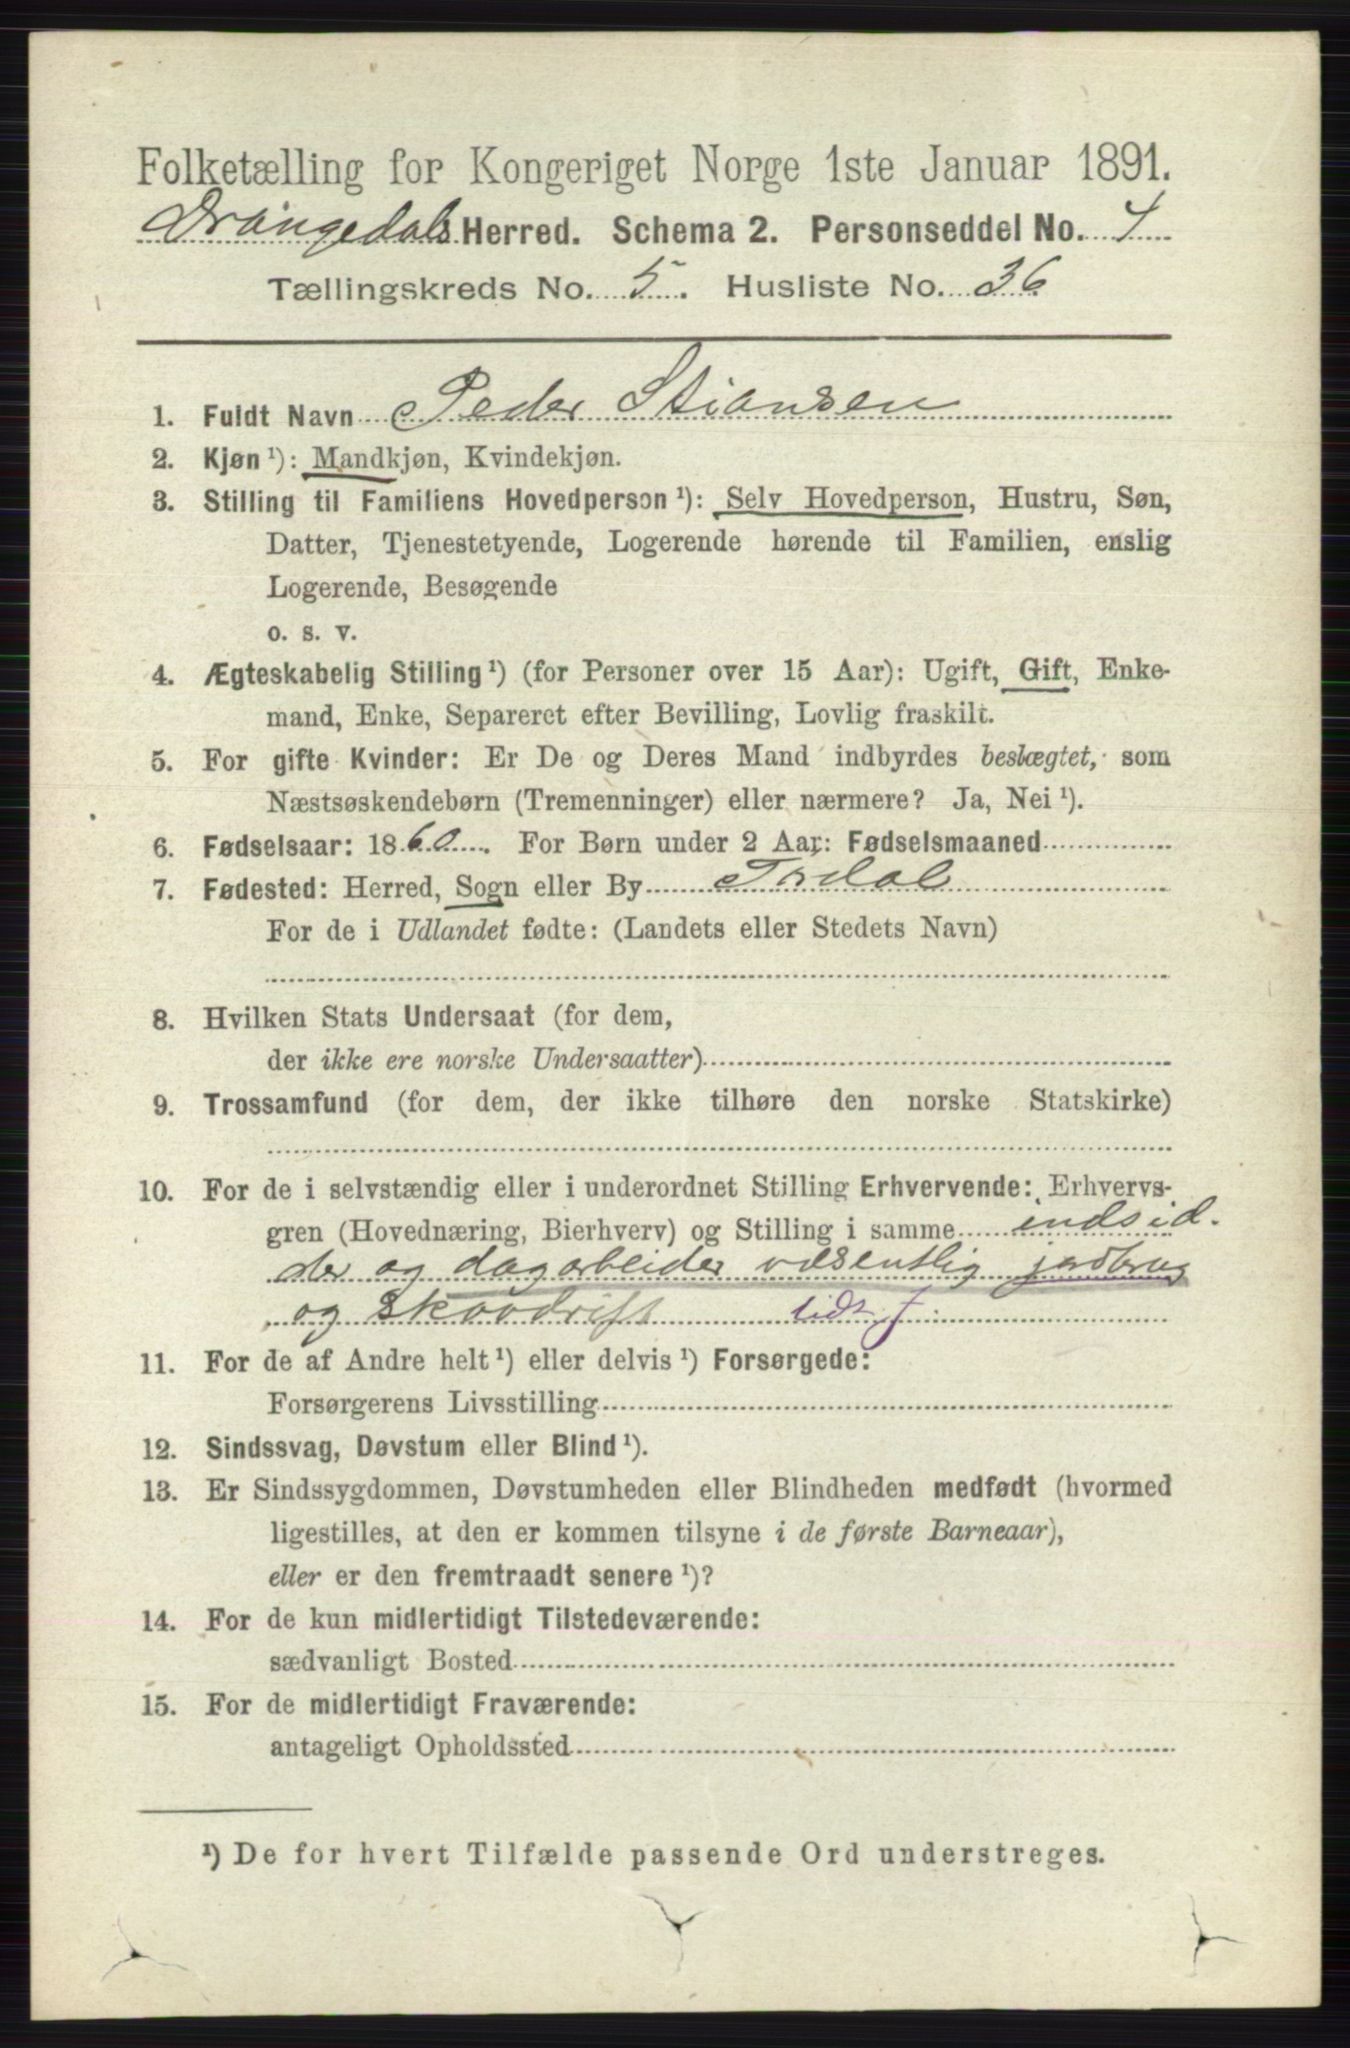 Folketælling for Kongeriget Norge 1ste Januar 1891.
Drangedals Herred. Schema 2. Personseddel No. 1
Tællingskreds No. 5. Husliste No. 36
1. Fuldt Navn Peder Stiansen
2. Kjøn ¹): Mandkjøn, Kvindekjøn.
3. Stilling til Familiens Hovedperson ¹): Selv Hovedperson, Hustru, Søn,
Datter, Tjenestetyende, Logerende hørende til Familien, enslig
Logerende, Besøgende
o. s. v.
4. Ægteskabelig Stilling ¹) (for Personer over 15 Aar): Ugift, Gift, Enke-
mand, Enke, Separeret efter Bevilling, Lovlig fraskilt.
5. For gifte Kvinder: Er De og Deres Mand indbyrdes beslægtet, som
Næstsøskendebørn (Tremenninger) eller nærmere? Ja, Nei ¹).
6. Fødselsaar: 1860. For Børn under 2 Aar: Fødselsmaaned
7. Fødested: Herred, Sogn eller By Tørdal
For de i Udlandet fødte: (Landets eller Stedets Navn)
8. Hvilken Stats Undersaat (for dem,
der ikke ere norske Undersaatter)
9. Trossamfund (for dem, der ikke tilhøre den norske Statskirke)
10. For de i selvstændig eller i underordnet Stilling Erhvervende: Erhvervs-
gren (Hovednæring, Bierhverv) og Stilling i samme indsid-
der og dagarbeider væsentlig jordbrug
og skovdrift lidt J.
11. For de af Andre helt ¹) eller delvis ¹) Forsørgede:
Forsørgerens Livsstilling
12. Sindssvag, Døvstum eller Blind ¹).
13. Er Sindssygdommen, Døvstumheden eller Blindheden medfødt (hvormed
ligestilles, at den er kommen tilsyne i de første Barneaar),
eller er den fremtraadt senere ¹)?
14. For de kun midlertidigt Tilstedeværende:
sædvanligt Bosted
15. For de midlertidigt Fraværende:
antageligt Opholdssted
¹) De for hvert Tilfælde passende Ord understreges.